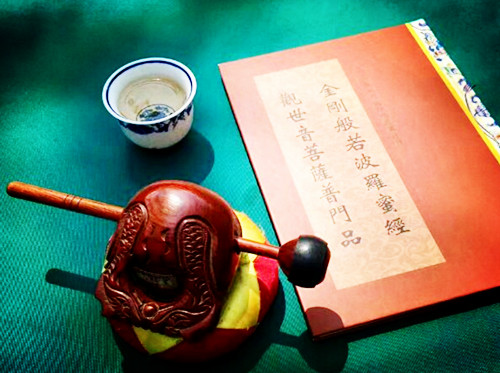 金剛般若波羅蜜經
觀世音菩薩普門品